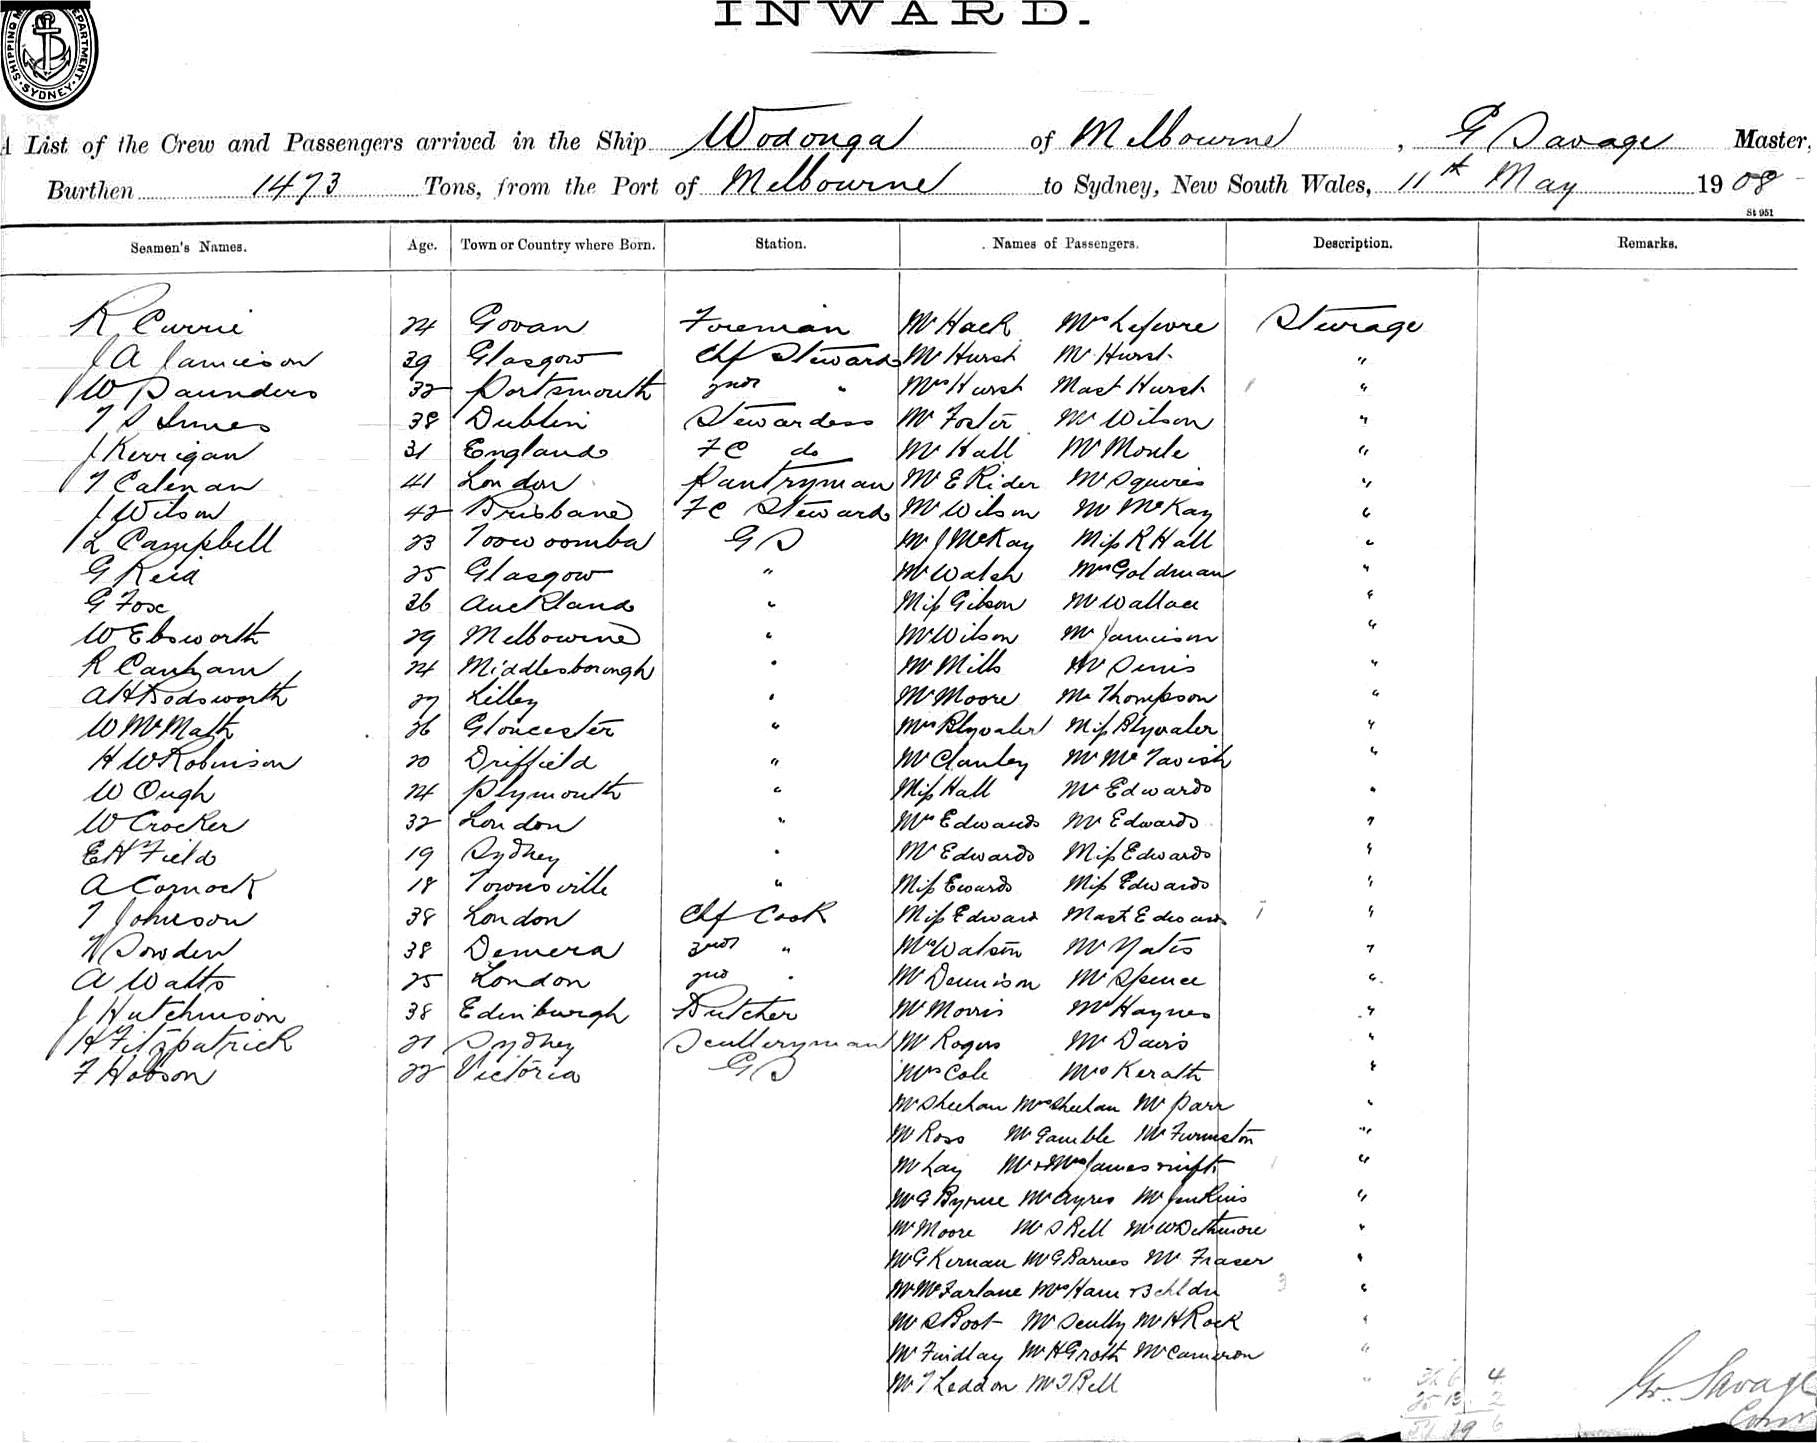 INWARD.
SHIPPING DEPARTMENT. SYDNEY.
A List of the Crew and Passengers arrived in the Ship Wodonga of Melbourne, G Savage Master,
Burthen 1473 Tons, from the Port of Melbourne to Sydney, New South Wales, 11th May 1908
St 951
Seamen's Names. Age. Town or Country where Born. Station. Names of Passengers. Description. Remarks.
R Currie 24 Govan Foreman Mr Hack Mrs Lefevre Steerage
J A Jamieson 39 Glasgow Chf Steward Mr Hurst Mr Hurst "
W Saunders 32 Portsmouth 2nd " Mrs Hurst Mast Hurst "
T S Innes 38 Dublin Stewardess Mr Foster Mr Wilson "
J Kerrigan 31 England F C do Mr Hall Mr Moule "
T Calenan 41 London Pantryman Mr E Rider Mr Squires "
J Wilson 42 Brisbane F C Steward Mr Wilson Mr McKay "
L Campbell 23 Toowoomba G S Mr J McKay Miss R Hall "
G Reid 25 Glasgow " Mr Walsh Mrs Goldman "
G Fox 36 Auckland " Miss Gibson Mr Wallace "
W Ebsworth 29 Melbourne " Mr Wilson Mr Jamieson "
R Canham 24 Middlesborough " Mr Mills "
A H Dodsworth 27 Lilley " Mr Moore Mr Thompson "
W McMath 26 Gloucester " Mrs Blyvaler Miss Blyvaler "
H W Robinson 20 Driffield " Mr Clanley Mr McTavish "
W Ough 24 Plymouth " Miss Hall Mr Edwards "
W Crocker 32 London " Mrs Edwards Mr Edwards "
E H Field 19 Sydney " Mr Edwards Miss Edwards "
A Cornock 18 Townsville " Miss Ewards Miss Edwards "
T Johnson 38 London Chf Cook Miss Edward Mast Edwards "
Sowden 38 Demera 2nd " Mrs Watson Mr Yates "
A Watts 25 London 2nd " Mr Dennison Mr Spence "
J Hutchinson 38 Edinburgh Butcher Mr Morris Mr Haynes "
H Fitzpatrick 21 Sydney Sculleryman Mr Rogers Mr Davis "
F Hobson 22 Victoria G S Mrs Cole Mrs Kerath "
Mr Sheehan Mrs Sheehan Mr Parr "
Mr Ross Mr Gamble Mr Furmston "
Mr Lay Mr & Mrs James & inft "
Mr G Byrne Mr Ayres Mr Jenkins "
Mr Moore Mr S Bell Mr W Dethmore "
Mr G Kernan Mr G Barnes Mr Fraser "
Mr McFarlane Mrs Ham & 3 chldn 3 "
Mr S Boot Mr Scully Mr H Rock "
Mr Findlay Mr H Groth Mr Cameron "
Mr T Leddon Mr T Bell "
Savage